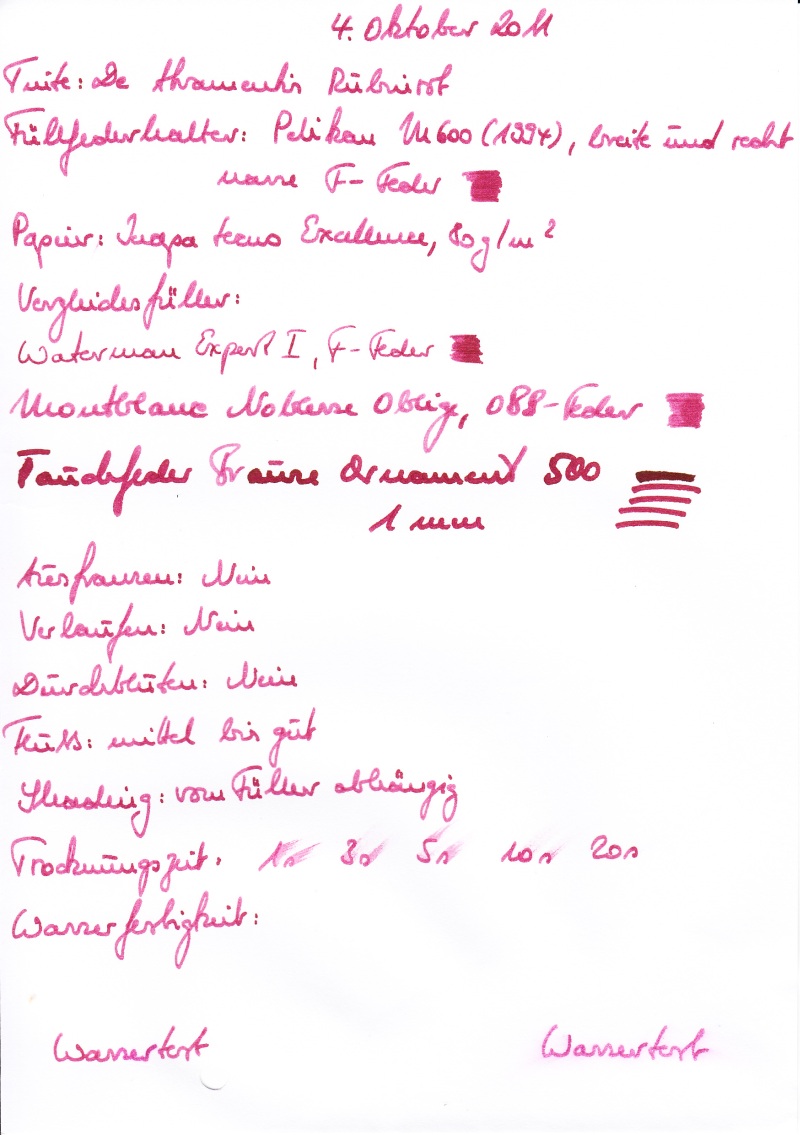 4. Oktober 2011
Tinte: De Atramentis Rubinrot
Füllfederhalter: Pelikan M600 (1994), breite und recht
nasse F-Feder
Papier: Inapa tecno Excellence, 80 g/m²
Vergleichsfüller:
Waterman Expert I, F-Feder
Montblanc Noblesse Oblige, 088-Feder
Tauchfeder Brause Ornament 500
1 mm
Ausfransen: Nein
Verlaufen: Nein
Durchbluten: Nein
Fluss: mittel bis gut
Shading: vom Füller abhängig
Trocknungszeit: 1s 3s 5s 10s 20s
Wasserfestigkeit:
Wassertest Wassertest